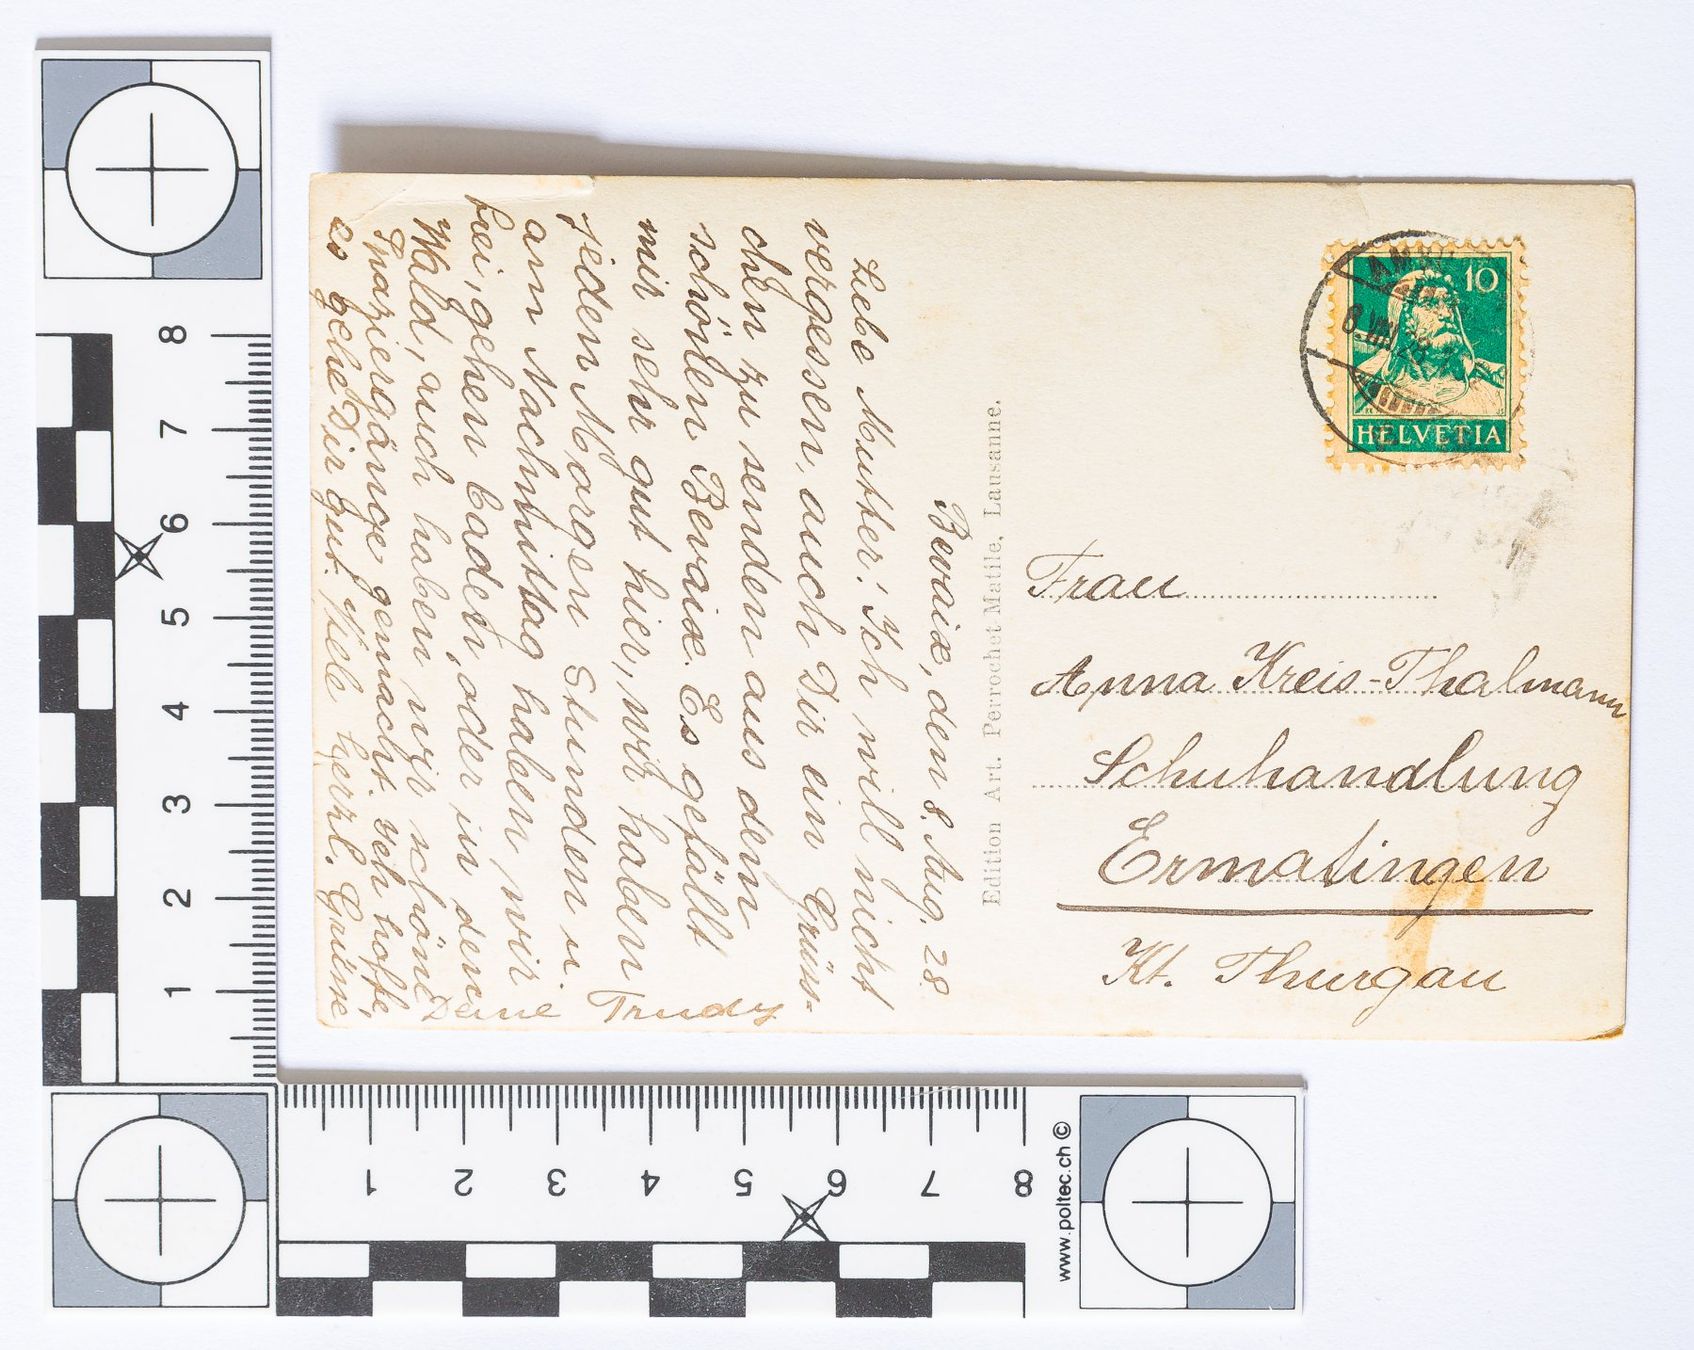 Bevaix, den 8. Aug. 28.
Liebe Mutter! Ich will nicht
vergessen, auch Dir ein Grüss-
chen zu senden aus dem
schönen Bevaix. Es gefällt
mir sehr gut hier, wir haben
jeden Morgen Stunden u.
am Nachmittag haben wir
frei, gehen baden, oder in den
Wald, auch haben wir schöne
Spaziergänge gemacht. Ich hoffe,
es gehe Dir gut. Viele herzl. Grüsse
Deine Trudy
Edition Art. Perrochet Matile, Lausanne.
10
HELVETIA
8. VIII. 28
Frau
Anna Kreis-Thalmann
Schuhandlung
Ermatingen
Kt. Thurgau
8
7
6
5
4
3
2
1
1
2
3
4
5
6
7
8
www.poltec.ch ©